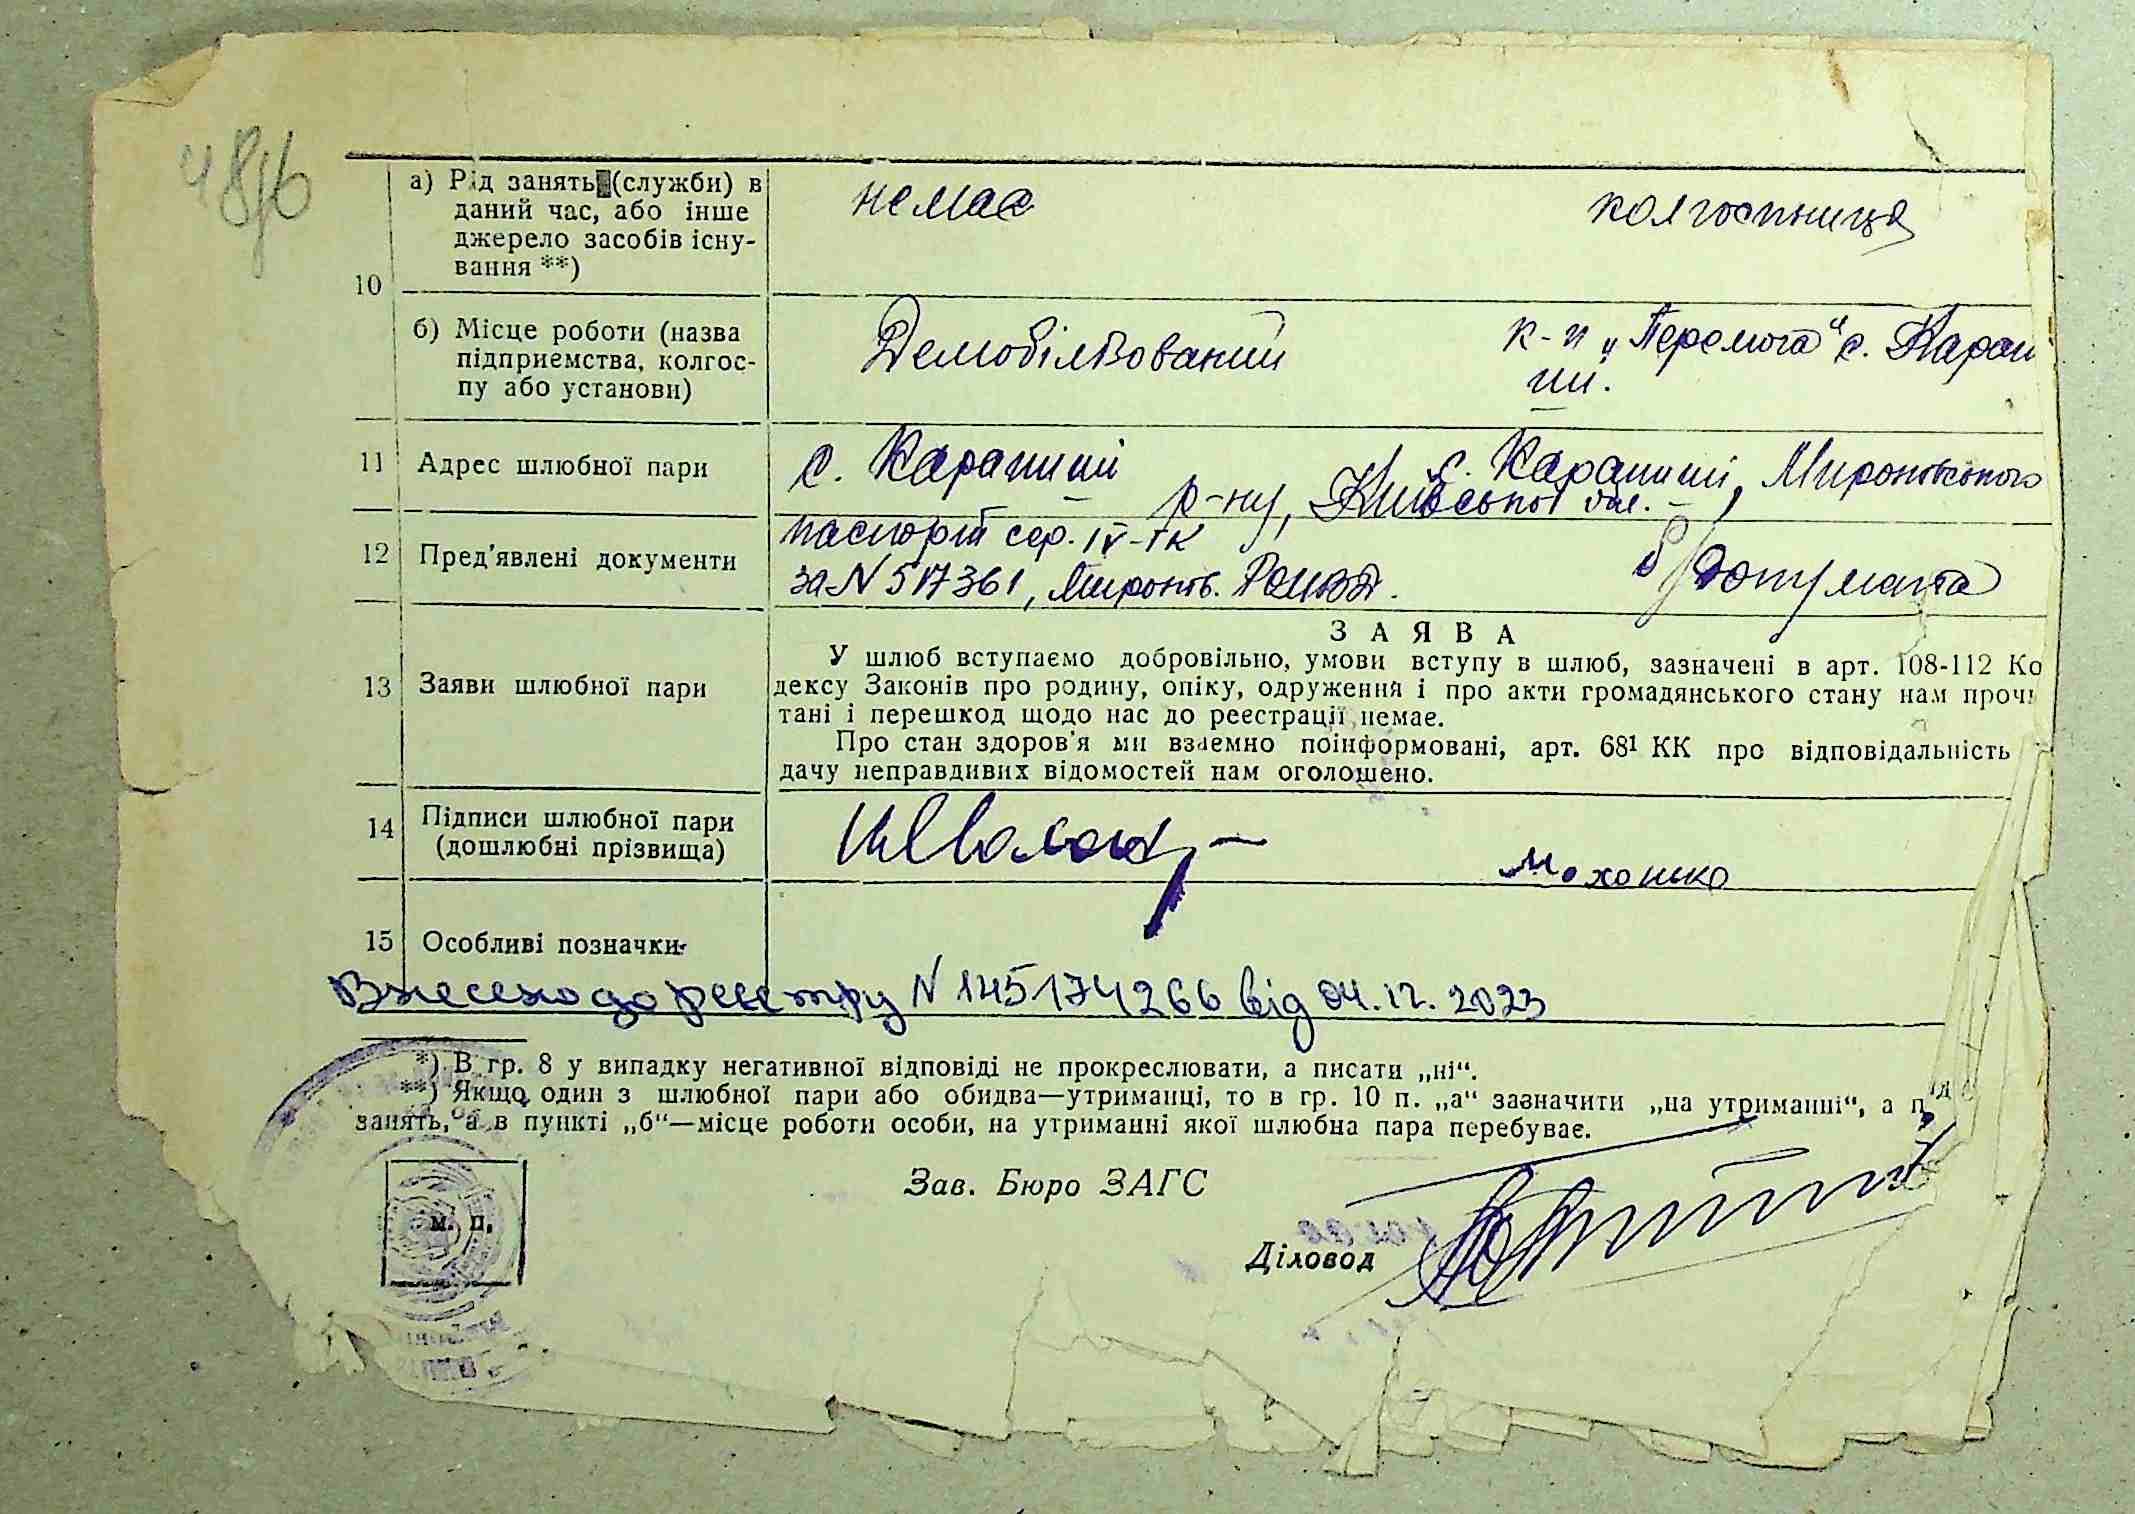 а) Рід занять (служби) в
даний час, або інше
джерело засобів існу-
вання **)
немає
колгоспниця
10
б) Місце роботи (назва
підприємства, колгос-
пу або установи)
Демобілізований
к-п „Перемога" с. Карап
иши.
11 Адрес шлюбної пари
с. Карапиші
с. Карапиші, Миронівського
р-ну, Київської обл.
12 Пред'явлені документи
паспорт сер. IV-ТК
за N 517361, Миронів.
б/документа
13 Заяви шлюбної пари
ЗАЯВА
У шлюб вступаємо добровільно, умови вступу в шлюб, зазначені в арт. 108-112 Ко
дексу Законів про родину, опіку, одруження і про акти громадянського стану нам прочи
тані і перешкод щодо нас до реєстрації немає.
Про стан здоров'я ми взаємно поінформовані, арт. 68¹ КК про відповідальність
дачу неправдивих відомостей нам оголошено.
14 Підписи шлюбної пари
(дошлюбні прізвища)
Мохонько
15 Особливі позначки
Внесено до реєстру N 145174266 від 04.12.2023
*) В гр. 8 у випадку негативної відповіді не прокреслювати, а писати „ні“.
**) Якщо один з шлюбної пари або обидва—утриманці, то в гр. 10 п. „а“ зазначити „на утриманні“, а
занять, а в пункті „б“—місце роботи особи, на утриманні якої шлюбна пара перебуває.
м. п.
Зав. Бюро ЗАГС
Діловод